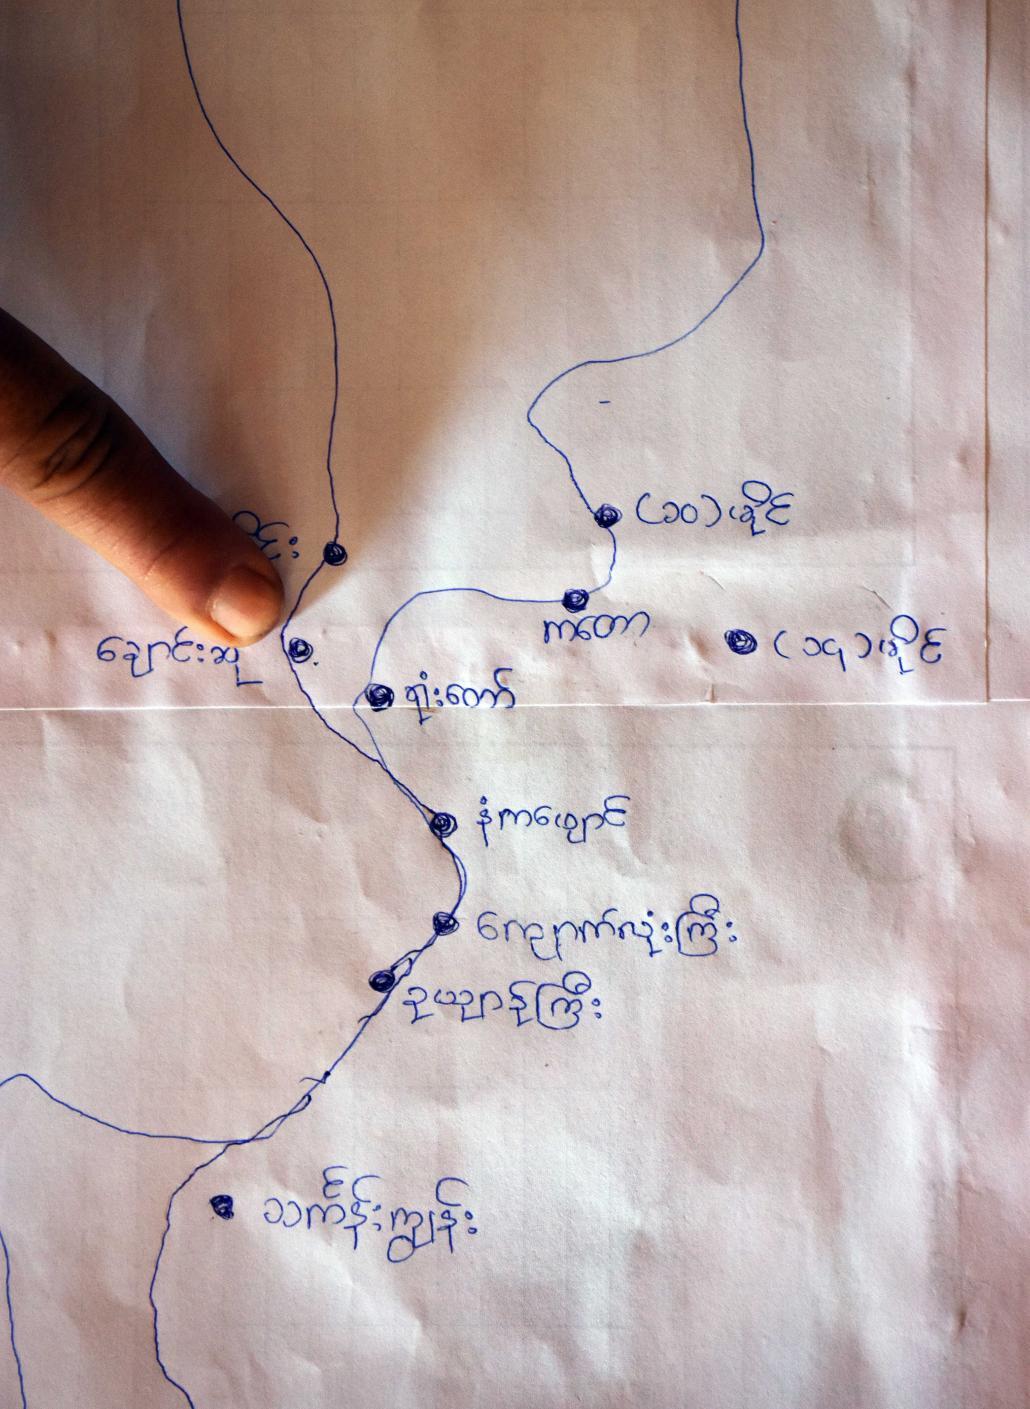 (၁၀) မိုင်
ချောင်းဆုံ
ကတော
(၁၄) မိုင်
ရုံးတော်
နံကဖျောင်
ကျောက်လုံးကြီး
ဥယျာန်ကြီး
သင်္ကန်းကျွန်း